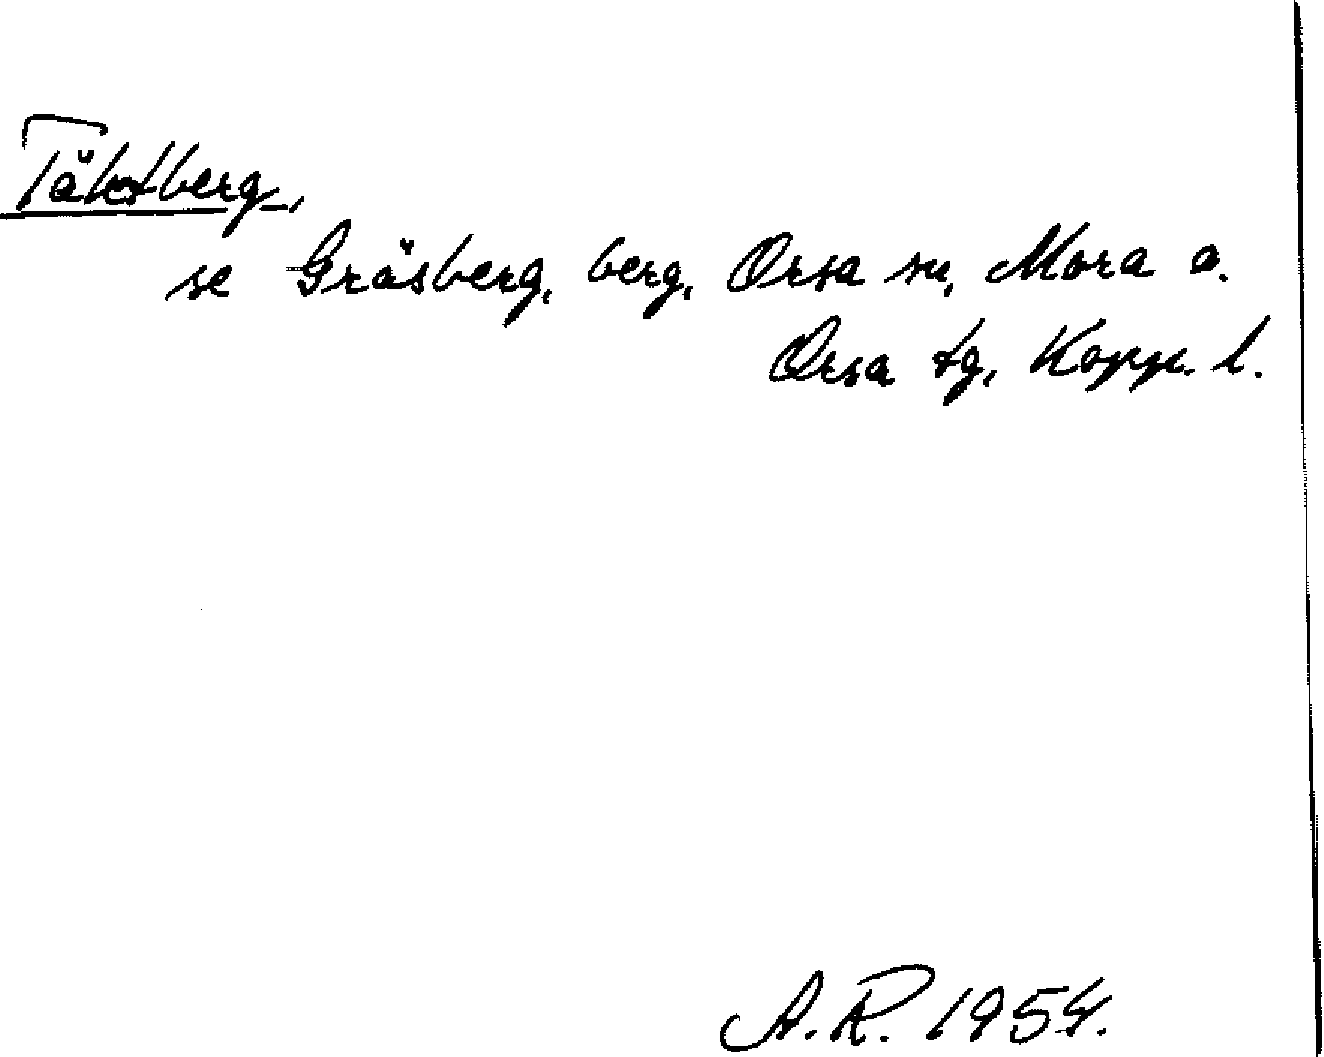 Täktberg,
se Gräsberg, berg, Orsa sn, Mora o.
Orsa tg, Kopp. l.
A.R. 1954.